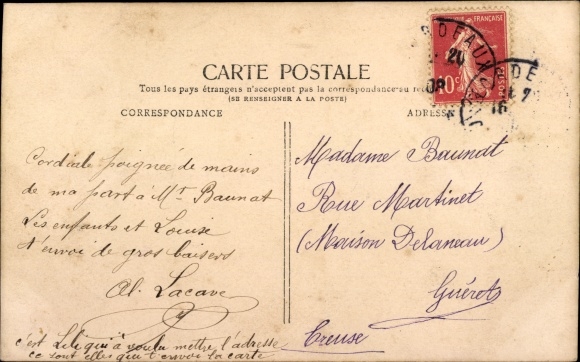 CARTE POSTALE
Tous les pays étrangers n'acceptent pas la correspondance au
(SE RENSEIGNER A LA POSTE)
CORRESPONDANCE
ADRESSE
FRANÇAISE
10c
POSTES
BORDEAUX
20
08
DE
16
Cordiale poignée de mains
de ma part à Mr Baunat
Lis enfants et Louise
t'envoi de gros baisers
Al. Lacave
c'est Lili qui à voulu mettre l'adresse
ce sont elles qui t'envoi la carte
Madame Baunat
Rue Martinet
(Maison Delaneau)
Guéret
Creuse